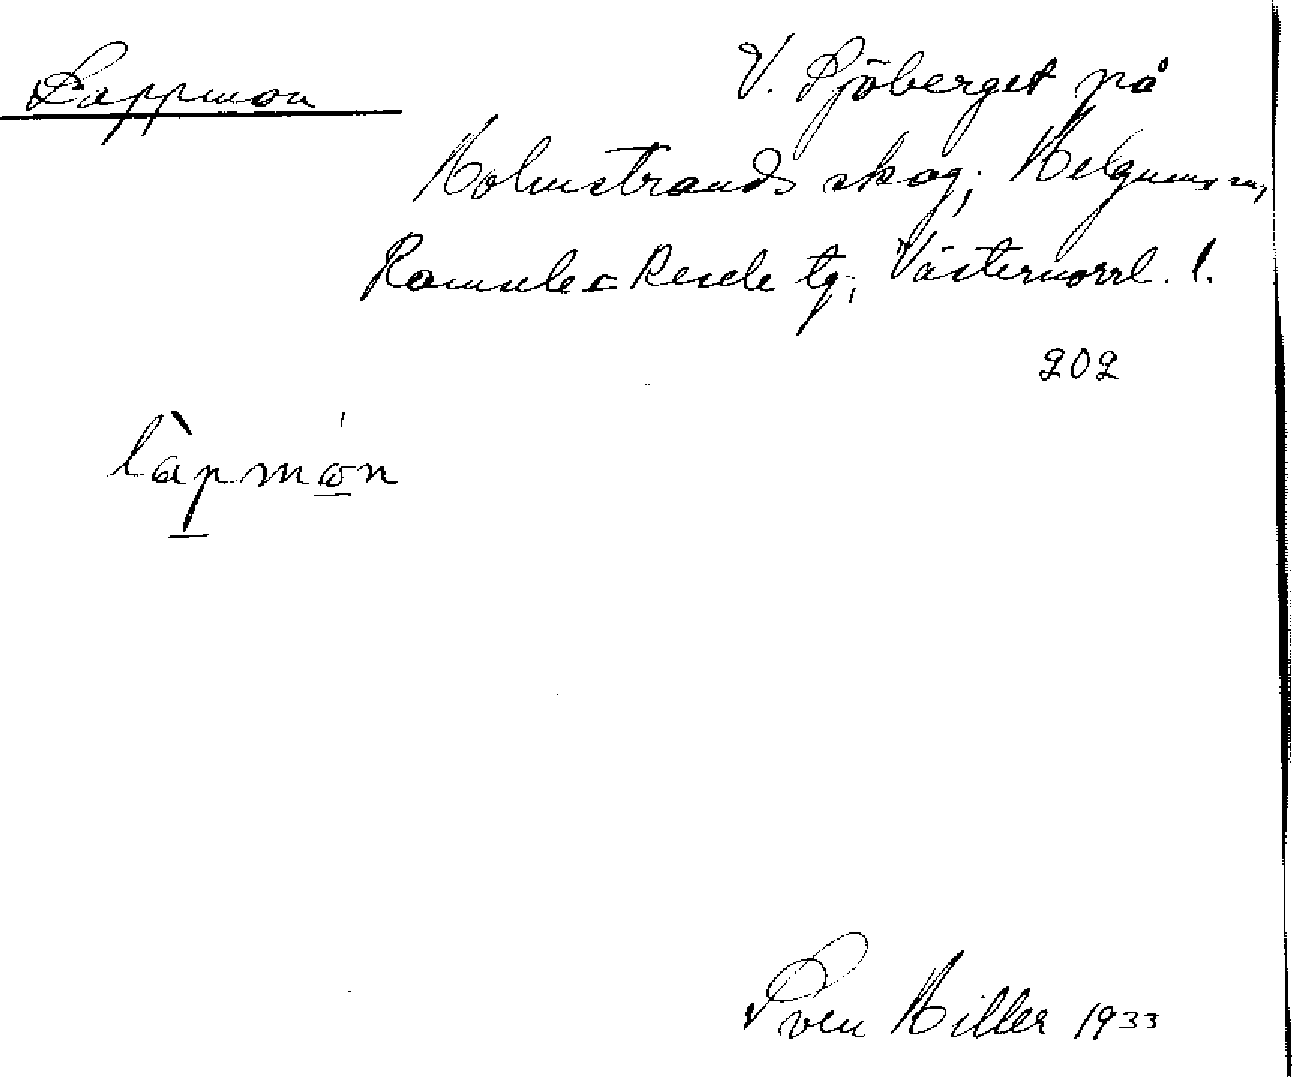 Lappmon
V. Sjöberget på
Holmstrands skog; Helgums sn,
Ramsele o Resele tg; Västernorrl. l.
202
làpmón
Sven Hiller 1933